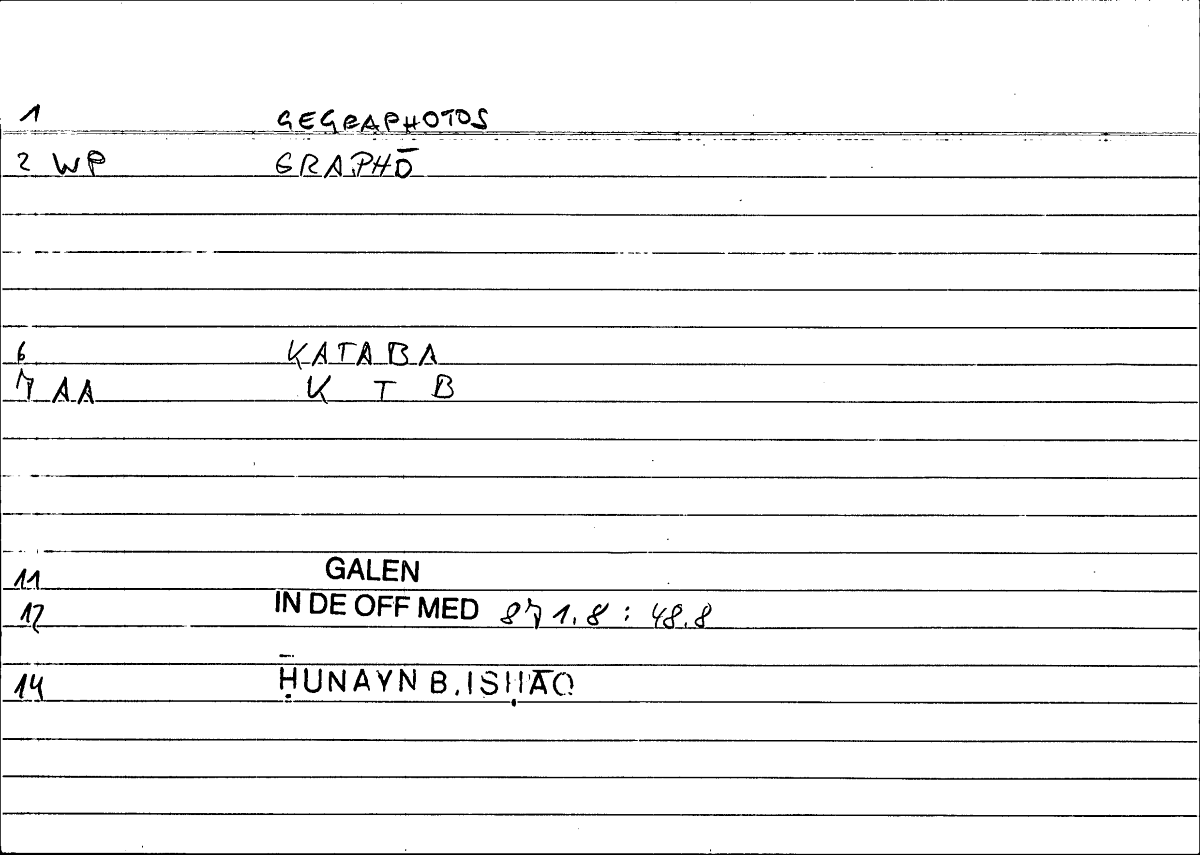 1 GEGRAPHOTOS
2 WP GRAPHŌ
6 KATABA
7 AA K T B
11 GALEN
12 IN DE OFF MED 871.8 : 48.8
14 ḤUNAYN B. ISḤĀQ